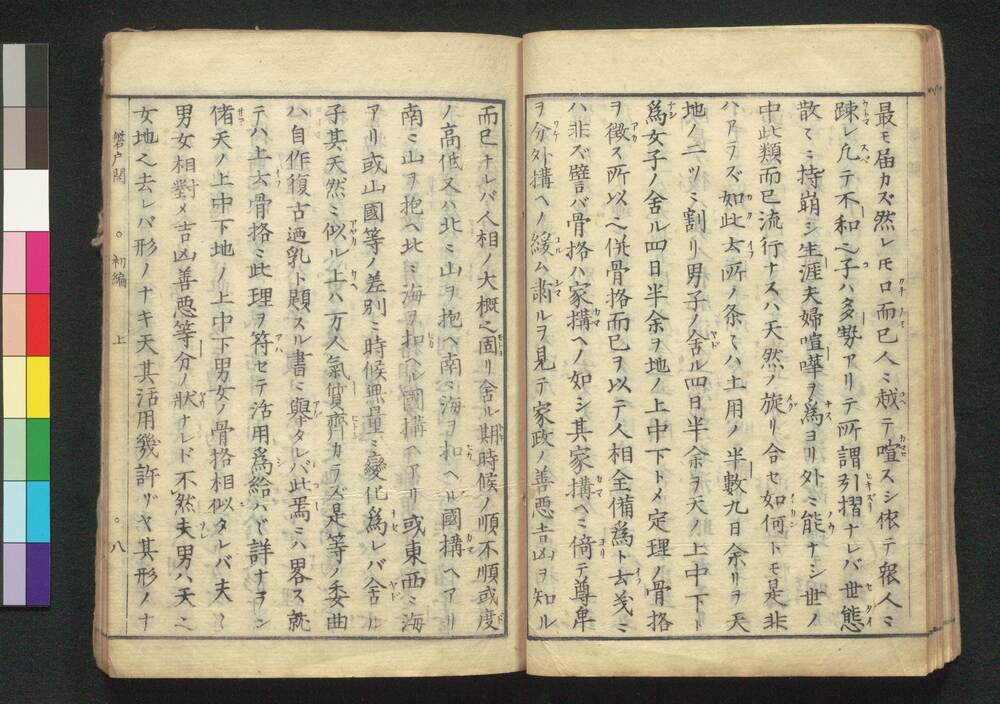 最モ届カズ然レモ口而已人ニ越テ喧スシ依テ衆人ニ
疎レ凢テ不和之子ハ多勢アリテ所謂引摺ナレバ世態
散々ニ持崩シ生涯夫婦喧嘩ヲ為ヨリ外ニ能ナシ世ノ
中此類而已流行ナスハ天然ノ旋リ合セ如何トモ是非
ハアラズ如此云所ノ条々ハ土用ノ半數九日余リヲ天
地ノ二ツニ割リ男子ノ舎ル四日半余ヲ天ノ上中下ト
為女子ノ舎ル四日半余ヲ地ノ上中下トメ定理ノ骨格
ヲ徴ス所以ヘ併骨格而已ヲ以テ人相全備為ト云義ニ
ハ非ズ譬バ骨格ハ家搆ヘノ如シ其家搆ヘニ倚テ尊卑
ヲ分外搆ヘノ緩ム肅ルヲ見テ家政ノ善悪吉凶ヲ知ル
而已ナレバ人相ノ大概之固リ舎ル期時候ノ順不順或度
ノ高低又ハ北ニ山ヲ抱ヘ南ニ海ヲ扣ヘル國搆ヘアリ
南ニ山ヲ抱ヘ北ニ海ヲ扣ヘル國搆ヘアリ或東西ニ海
アリ或山國等ノ差別ニ時候無量ニ變化為レバ舎ル
子其天然ニ似ル上ハ万人氣質齊カラズ是等ノ委曲
ハ自作復古過乳ト題スル書ニ擧タレバ此焉ニハ畧ス就
テハ上云骨格ニ此理ヲ符セテ活用為給ハド詳ナヲン
偖天ノ上中下地ノ上中下男女ノ骨格相似タレバ夫々
男女相對メ吉凶善悪等分ノ状ナレド不然夫男ハ天之
女地之去レバ形ノナキ天其活用幾許リゾヤ其形ノナ
磐戸開 ○初編 上 ○八